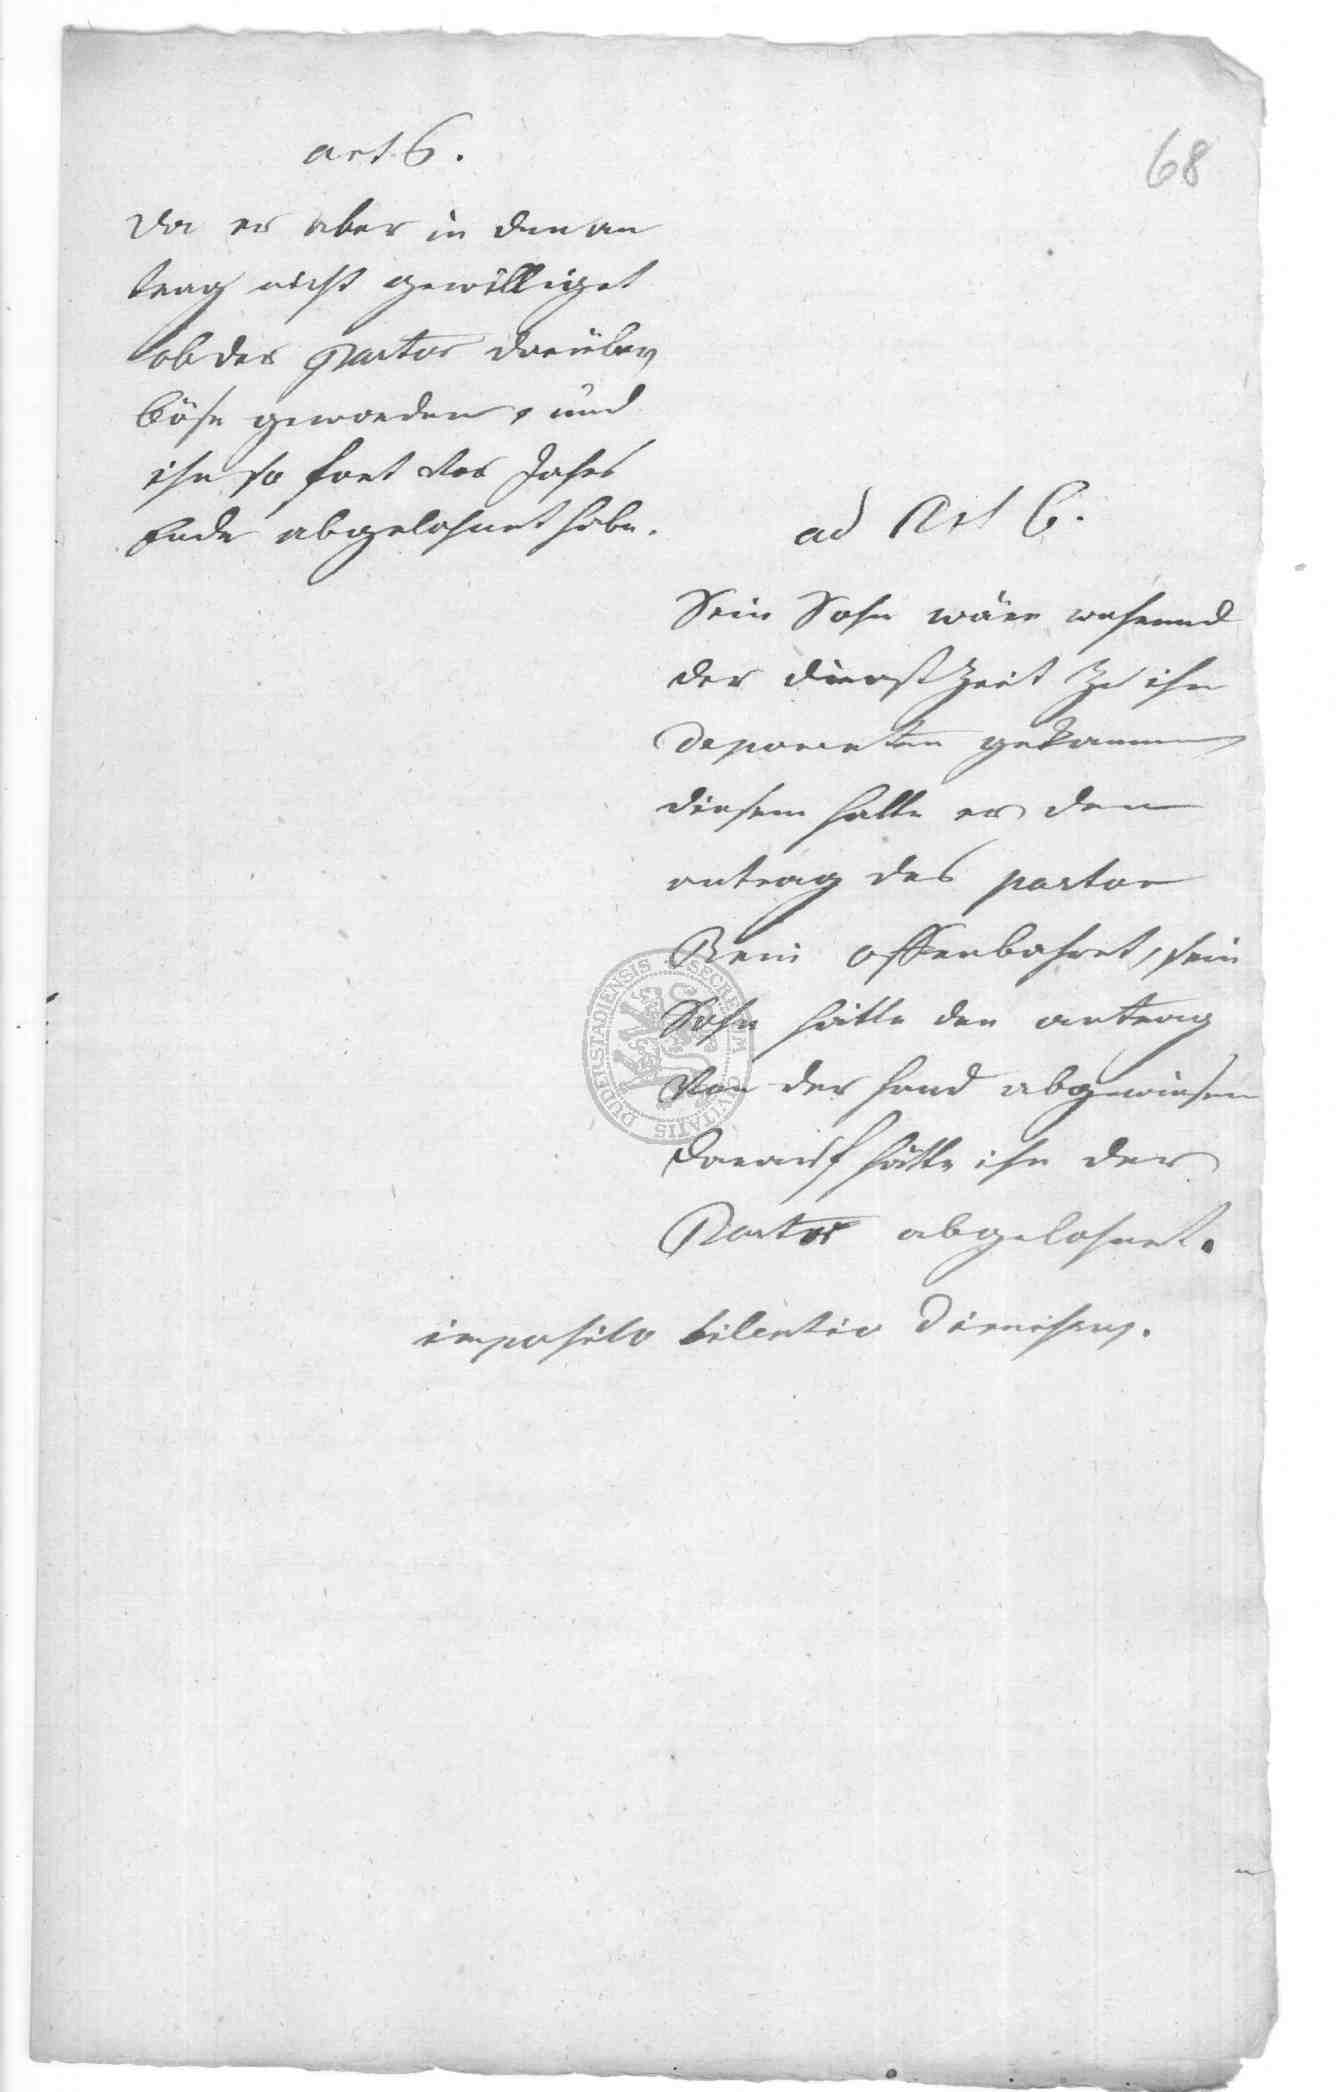 68
art 6.
Da er aber in den an
trag nicht gewilliget
ob der Pastor darüber
böse geworden, und
ihn so fort vor Jahrs
Ende abgelohnet habe.
ad Art 6.
Sein Sohn wäre wehrend
der dienst Zeit zu ihm
Deponenten gekommen
diesem hatte er den
antrag des pastor
offenbahret, sein
Sohn hätte den antrag
von der hand abgewiesen
darauf hätte ihn der
Pastor abgelohnet.
imposito silentio dimissus.
DUDERSTADIENSIS SECRETUM CIVITATIS